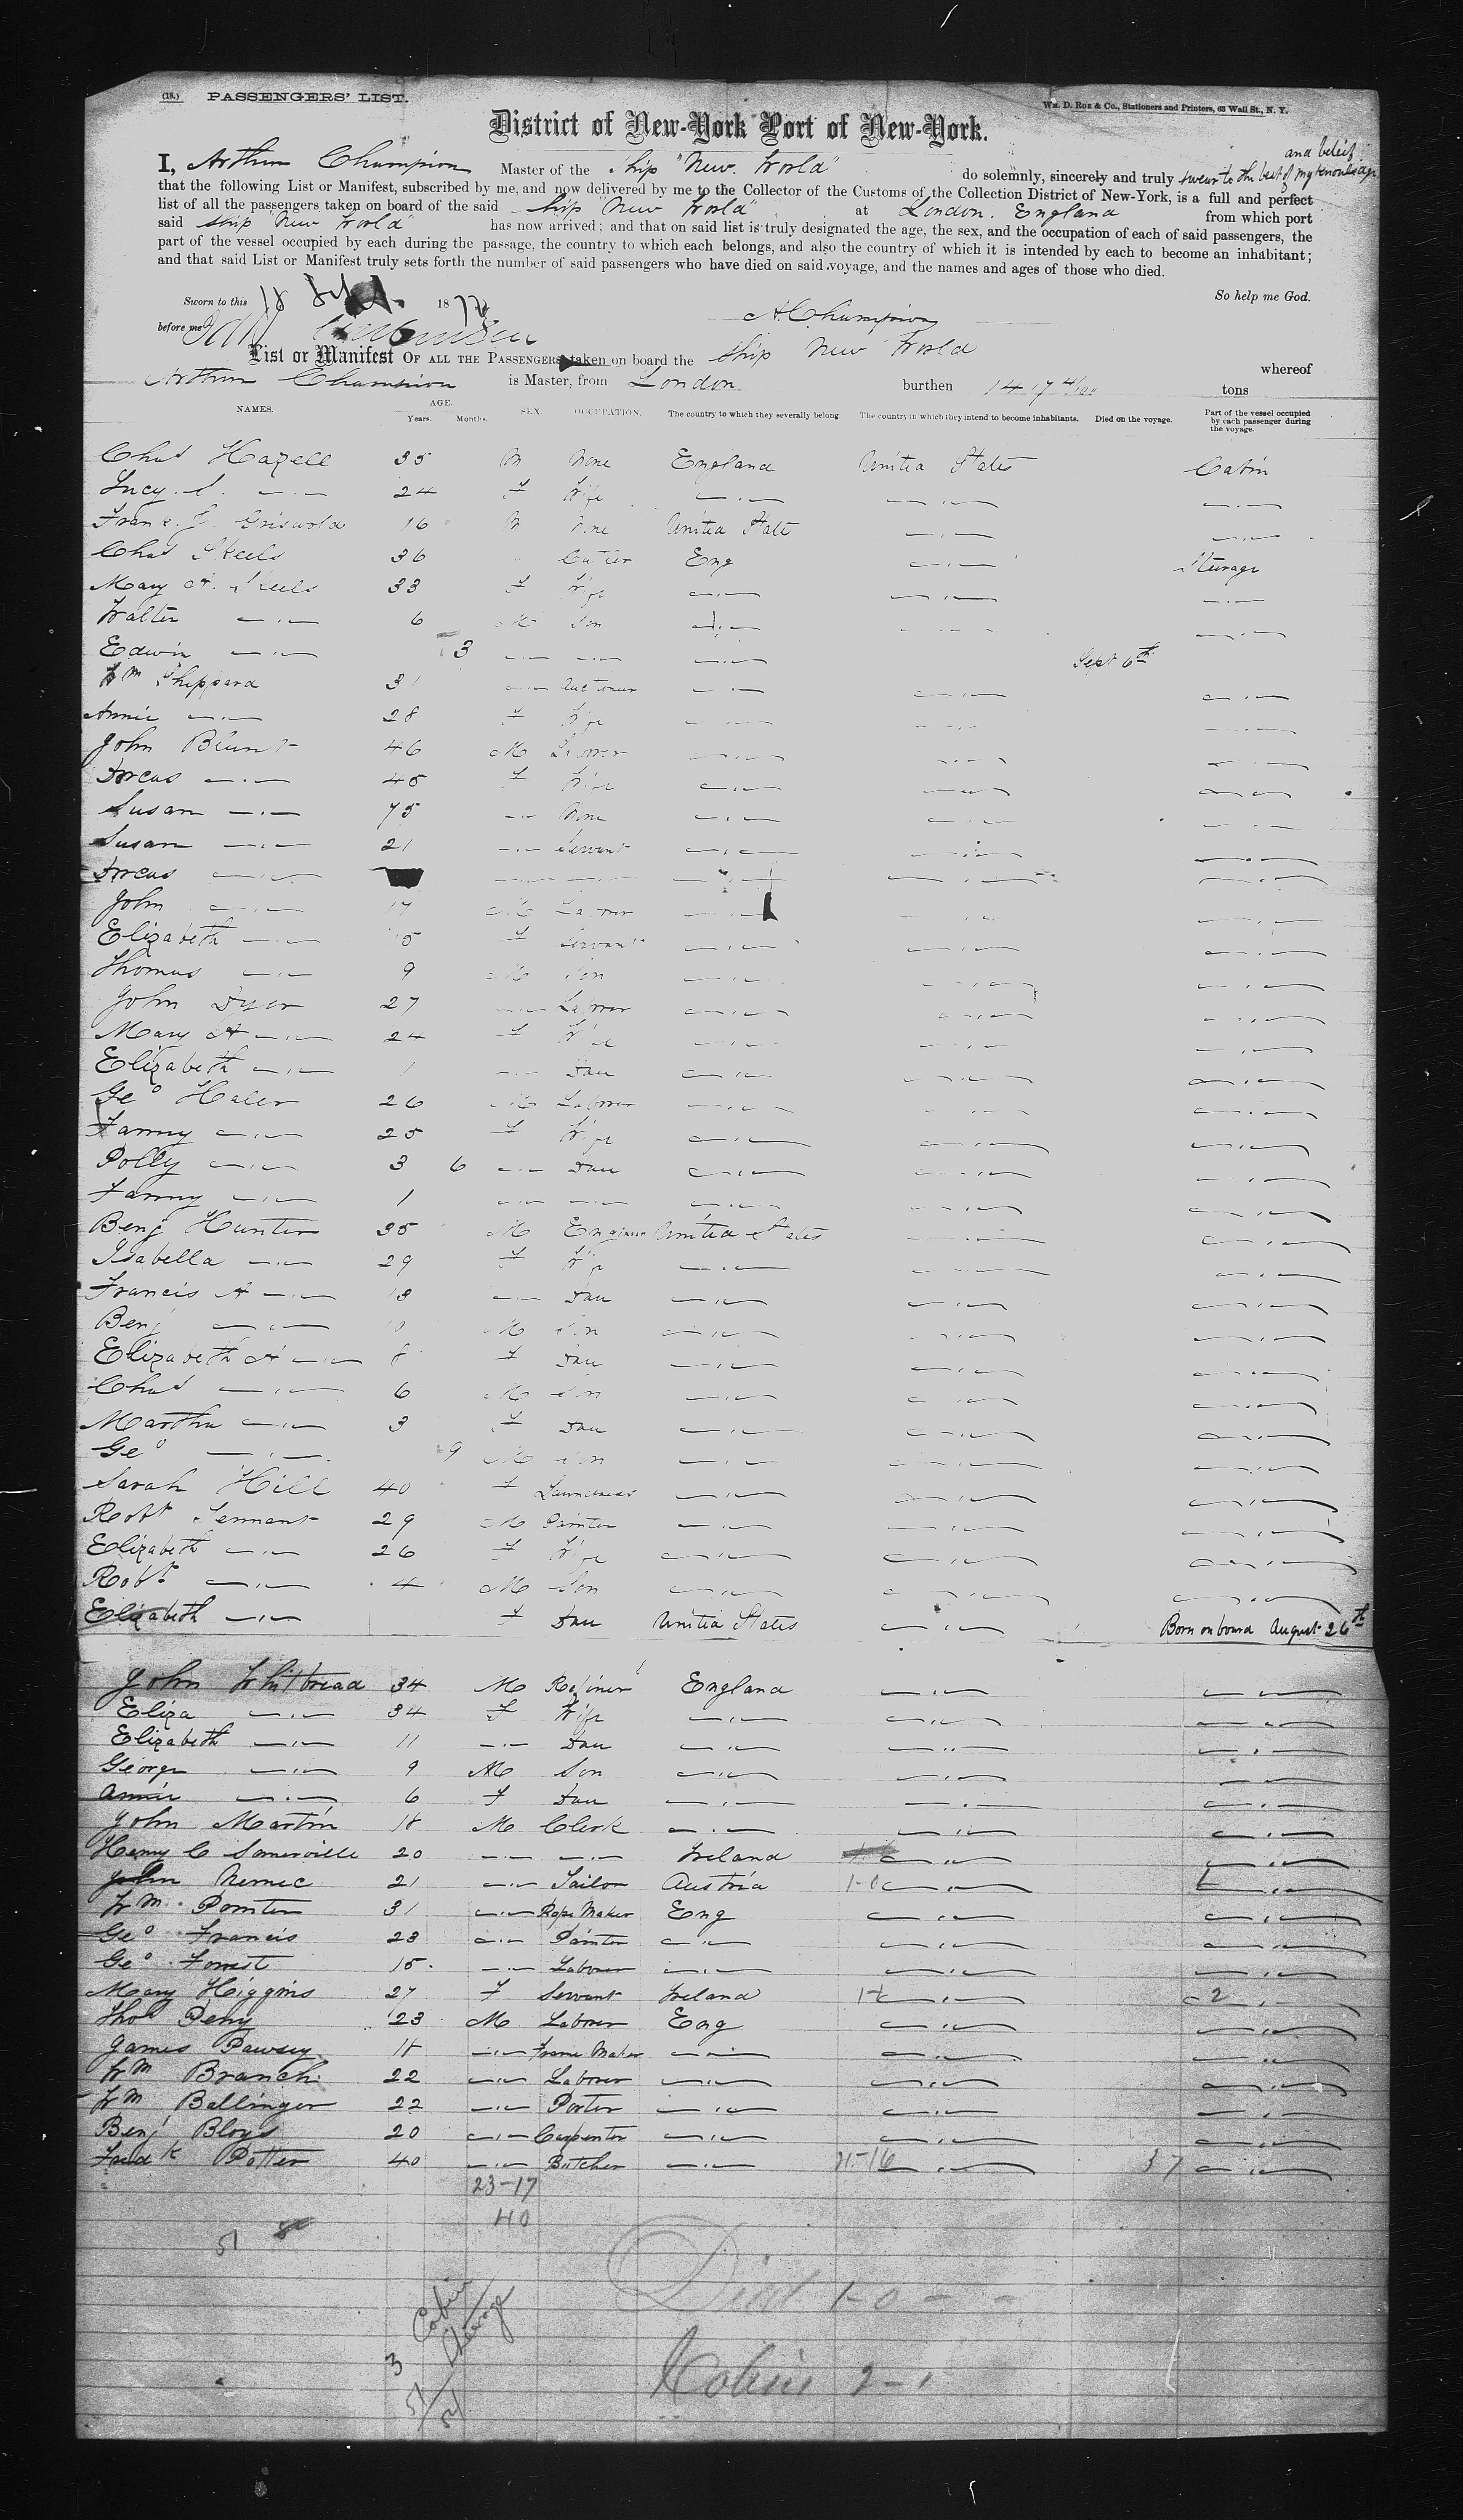 (18.) PASSENGERS' LIST.
Wm. D. Roe & Co., Stationers and Printers, 63 Wall St., N. Y.
District of New-York Port of New-York.
and belief
I, Arthur Champion Master of the Ship "New World" do solemnly, sincerely and truly swear to the best of my knowledge
that the following List or Manifest, subscribed by me, and now delivered by me to the Collector of the Customs of the Collection District of New-York, is a full and perfect
list of all the passengers taken on board of the said Ship "New World" at London. England from which port
said ship "New World" has now arrived; and that on said list is truly designated the age, the sex, and the occupation of each of said passengers, the
part of the vessel occupied by each during the passage, the country to which each belongs, and also the country of which it is intended by each to become an inhabitant;
and that said List or Manifest truly sets forth the number of said passengers who have died on said voyage, and the names and ages of those who died.
So help me God.
Sworn to this 18 Sept. 187
before me
A. Champion
List or Manifest OF ALL THE PASSENGERS taken on board the Ship New World whereof
Arthur Champion is Master, from London burthen 1417 4/100 tons
NAMES. AGE. Years. Months. SEX. OCCUPATION. The country to which they severally belong. The country in which they intend to become inhabitants. Died on the voyage. Part of the vessel occupied by each passenger during the voyage.
Chas Hazell 35 M None England United States Cabin
Lucy. S. —"— 24 F Wife —"— —"— —"—
Frank. G. Griswold 16 M None United State —"— —"—
Chas Skeels 36 Cutler Eng —"— Sterage
Mary A. Skeels 33 F Wife —"— —"— —"—
Walter —"— 6 M Son —"— —"— —"—
Edwin —"— 3 —"— —"— —"— Sept 6th
Wm Sheppard 31 —"— —"— —"— —"—
Annie —"— 28 F Wife —"— —"— —"—
John Blunt 46 M Laborer —"— —"— —"—
Dorcas —"— 45 F Wife —"— —"— —"—
Susan —"— 75 —"— None —"— —"— —"—
Susan —"— 21 —"— Servant —"— —"— —"—
Dorcas —"— —"— —"— —"— —"— —"—
John —"— 17 M Laborer —"— —"— —"—
Elizabeth —"— 15 F Servant —"— —"— —"—
Thomas —"— 9 M Son —"— —"— —"—
John Dyer 27 —"— Laborer —"— —"— —"—
Mary A —"— 24 F Wife —"— —"— —"—
Elizabeth —"— 1 —"— Dau —"— —"— —"—
Geo Haler 26 M Laborer —"— —"— —"—
Fanny —"— 25 F Wife —"— —"— —"—
Polly —"— 3 6 —"— Dau —"— —"— —"—
Fanny —"— 1 —"— —"— —"— —"— —"—
Benj Hunter 35 M Engineer United States —"— —"—
Isabella —"— 29 F Wife —"— —"— —"—
Francis A —"— 13 —"— Dau —"— —"— —"—
Benj —"— 10 M Son —"— —"— —"—
Elizabeth A —"— 8 F Dau —"— —"— —"—
Chas —"— 6 M Son —"— —"— —"—
Martha —"— 3 F Dau —"— —"— —"—
Geo —"— 9 M Son —"— —"— —"—
Sarah Hill 40 F Laundress —"— —"— —"—
Robt Tennant 29 M Painter —"— —"— —"—
Elizabeth —"— 26 F Wife —"— —"— —"—
Robt —"— 4 M Son —"— —"— —"—
Elizabeth —"— F Dau United States —"— Born on board August 26th
John Whitbread 34 M Refiner England —"— —"—
Eliza —"— 34 F Wife —"— —"— —"—
Elizabeth —"— 11 —"— Dau —"— —"— —"—
George —"— 9 M Son —"— —"— —"—
Annie —"— 6 F Dau —"— —"— —"—
John Martin 18 M Clerk —"— —"— —"—
Henry C Somerville 20 —"— —"— Ireland —"— —"—
John Nemec 21 —"— Tailor Austria 1-0 —"— —"—
Wm Pointer 31 —"— Rope Maker Eng —"— —"—
Geo Francis 23 —"— Painter —"— —"— —"—
Geo Forrest 15 —"— Laborer —"— —"— —"—
Mary Higgins 27 F Servant Ireland —"— 2
Thos Perry 23 M Laborer Eng —"— —"—
James Pawsey 18 —"— Frame Maker —"— —"— —"—
Wm Branch 22 —"— Laborer —"— —"— —"—
Wm Ballinger 22 —"— Porter —"— —"— —"—
Benj Bloys 20 —"— Carpenter —"— —"— —"—
Fredk Potter 40 —"— Butcher —"— 21-16 —"— 37 —"—
23-17
40
51
Died 1-0
3 Cabin
51 Sterage
54
Cabin 2-1